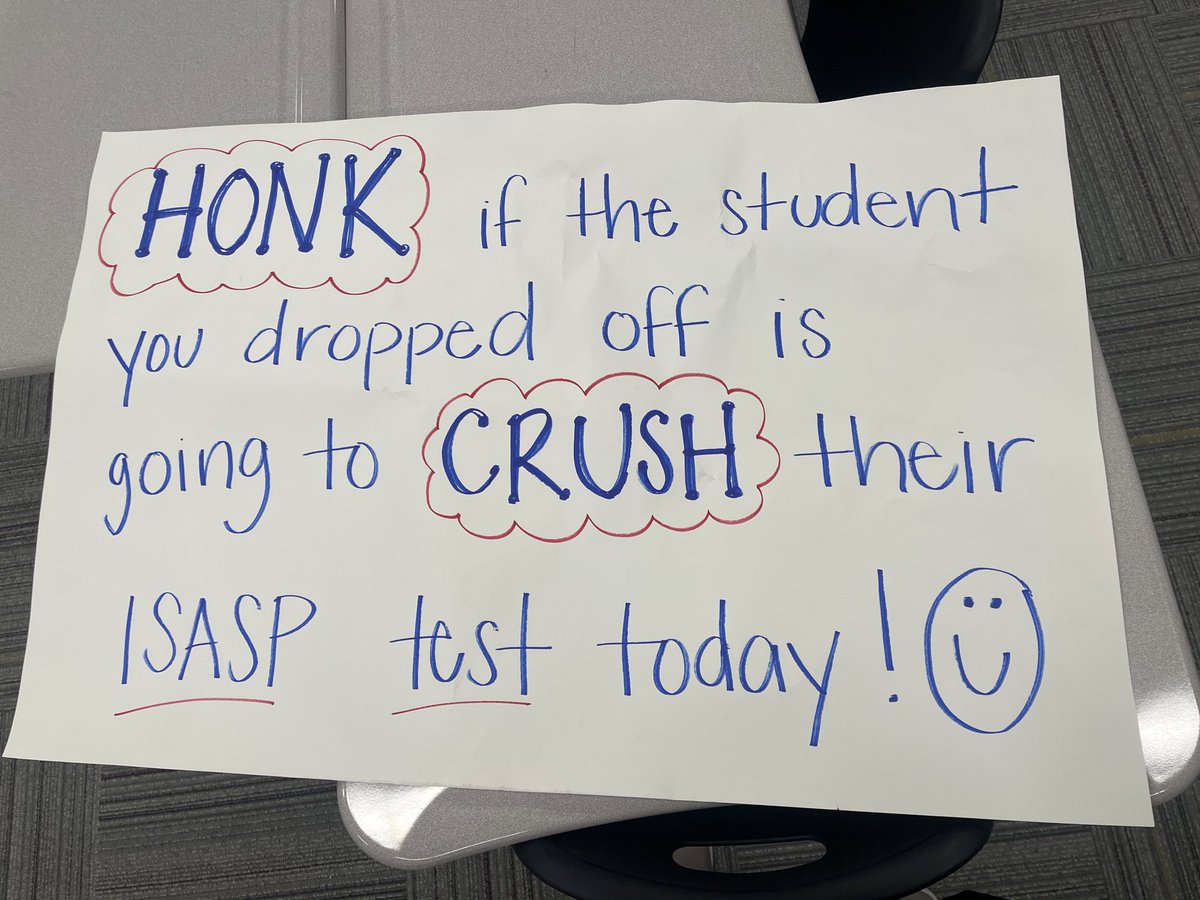 HONK if the student
you dropped off is
going to CRUSH their
ISASP test today!